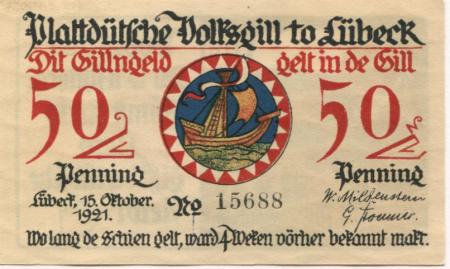 Plattdütsche Volksgill to Lübeck
Dit Gillngeld gelt in de Gill
50 50
Penning Penning
Lübeck, 15. Oktober. 1921.
No 15688
W. Mildenstein
Wo lang de Schien gelt, ward 4 Weken vörher bekannt makt.